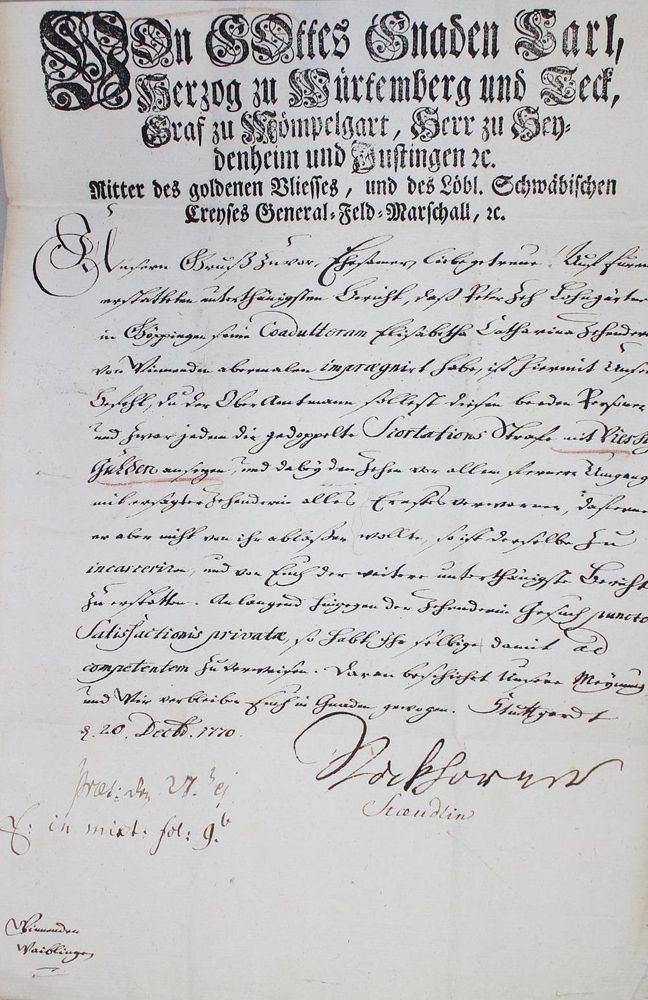 VOn GOttes Gnaden Carl,
Herzog zu Würtemberg und Teck,
Graf zu Mömpelgart, Herr zu Hey-
denheim und Justingen ꝛc.
Ritter des goldenen Vliesses, und des Löbl. Schwäbischen
Creyses General-Feld-Marschall, ꝛc.
Unsern Gruß zuvor, Ehrsamer, liebe getreue! Auf Euren
erstatteten unterthänigsten Bericht, daß Peter Zeh
in Göppingen seine Elisabetha Catharina Zehenderin
von Winnenden abermalen imprægnirt habe, ist hiermit Unser
Befehl, du der Ober Amtmann sollest diesen beeden Personen
und zwar jedem die gedoppelte Scortations Strafe mit
Gulden ansezen, und dabey den Zehen vor allem fernern Umgang
mit ersagter Zehenderin alles Ernstes verwarnen, dafern
er aber nicht von ihr ablaßen wollte, so ist derselbe zu
incarceriren, und von Euch der weitere unterthänigste Bericht
zu erstatten. Anlangend hingegen der Zehenderin Gesuch puncto
Satisfactionis privatæ, so habt Ihr selbige damit ad
competentem zu verweisen. Daran beschiehet Unsere Meynung
und Wir verbleiben Euch in Gnaden gewogen. Stuttgardt
d. 20. Decbr. 1770.
Stockhorner
Stæudlin
præs: den 27. ej
in mixt: fol: 9.b
Winnenden
Waiblingen